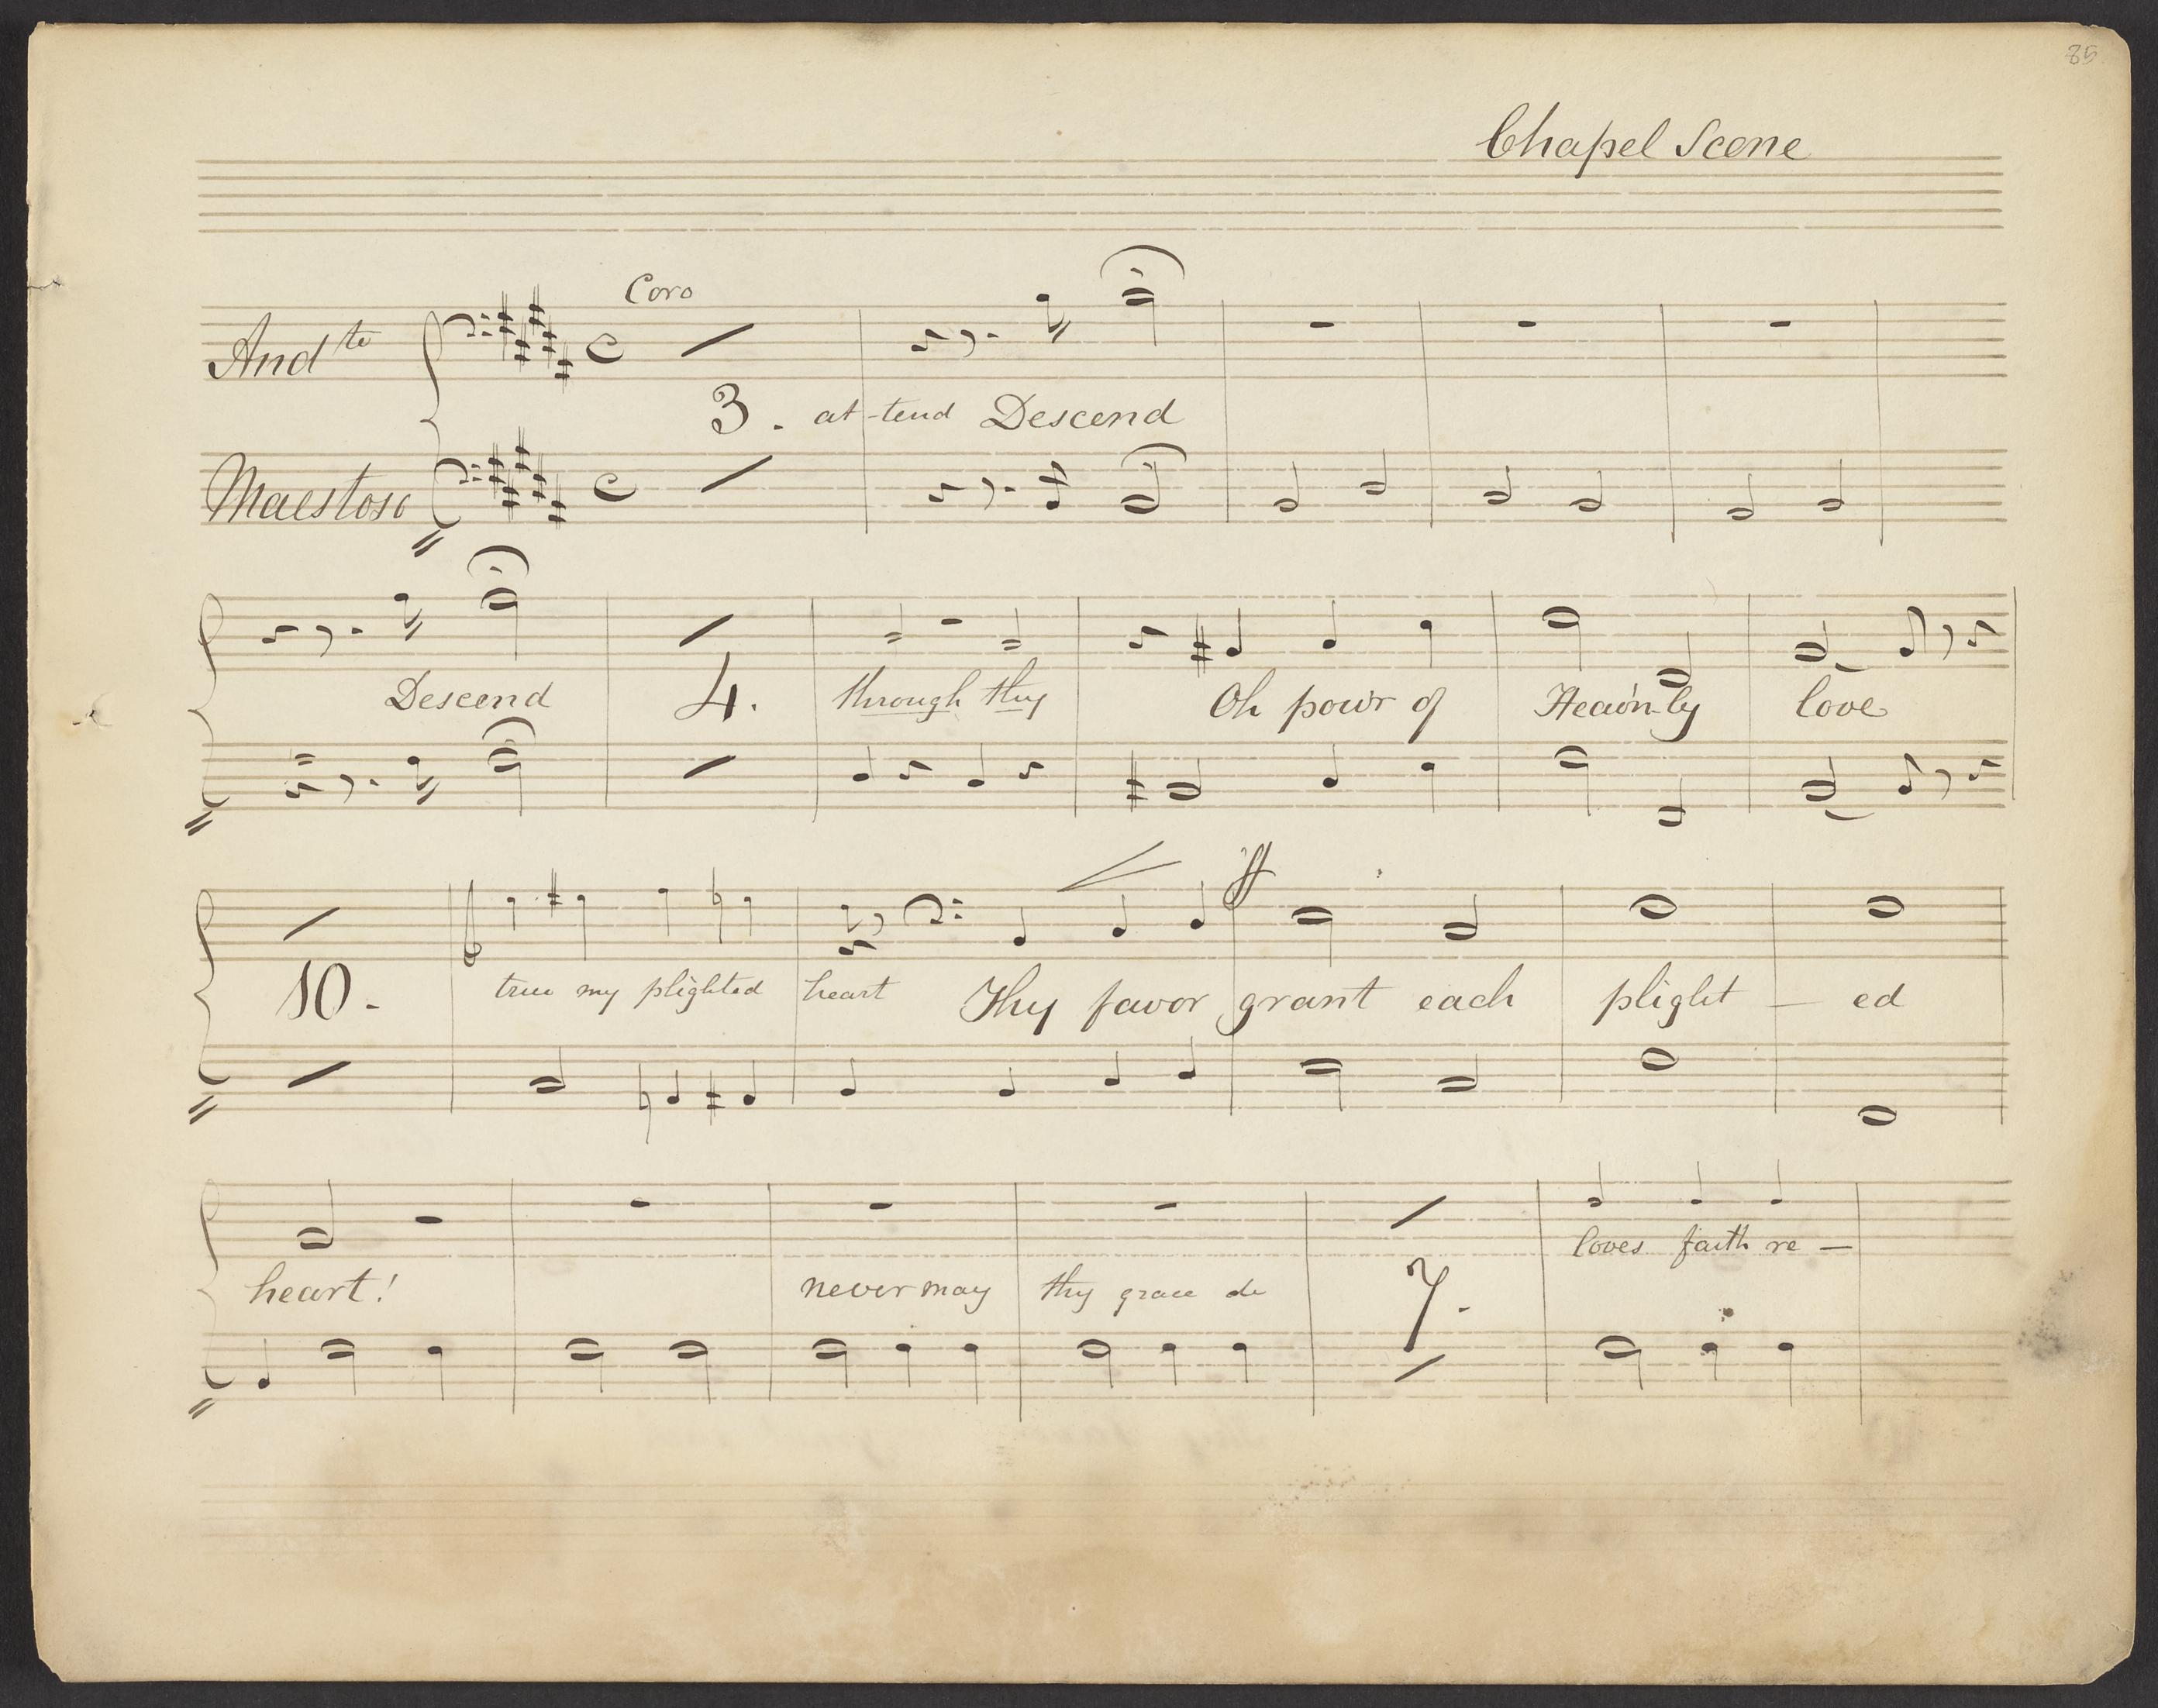 85
Chapel Scene
Coro
Andte
3. at-tend Descend
Maestoso
Descend 4. through thy Oh pow'r of Heav'n-ly love
ff
10. true my plighted heart Thy favor grant each plight - ed
loves faith re -
heart! never may thy grace de 7.